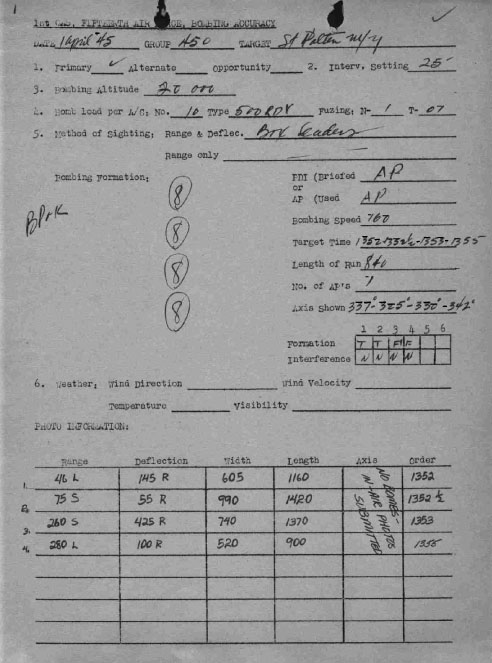 1
Int Ops, FIFTEENTH AIR FORCE, BOMBING ACCURACY
DATE 1 April '45 GROUP 450 TARGET St Polten m/y
1. Primary ✓ Alternate Opportunity 2. Interv. Setting 25'
3. Bombing Altitude 20 000
4. Bomb load per A/C; No. 10 Type 500 RDX Fuzing: N- 1 T- 07
5. Method of Sighting; Range & Deflec. Box Leaders
Range only
Bombing Formation; PDI (Briefed AP
or
AP (Used AP
8
8
8
8
Bombing Speed 160
Target Time 1352-1352½-1353-1355
Length of Run 840
No. of AP's 1
Axis Shown 337°-325°-330°-342°
1 2 3 4 5 6
Formation T T F F
Interference N N N N
6. Weather; Wind Direction Wind Velocity
Temperature Visibility
PHOTO INFORMATION:
Range Deflection Width Length Axis Order
1. 46 L 145 R 605 1160 1352
2. 75 S 55 R 990 1420 1352 ½
3. 260 S 425 R 740 1370 1353
4. 280 L 100 R 520 900 1355
NO BOMBS-
IN-AIR PHOTOS
SUBMITTED